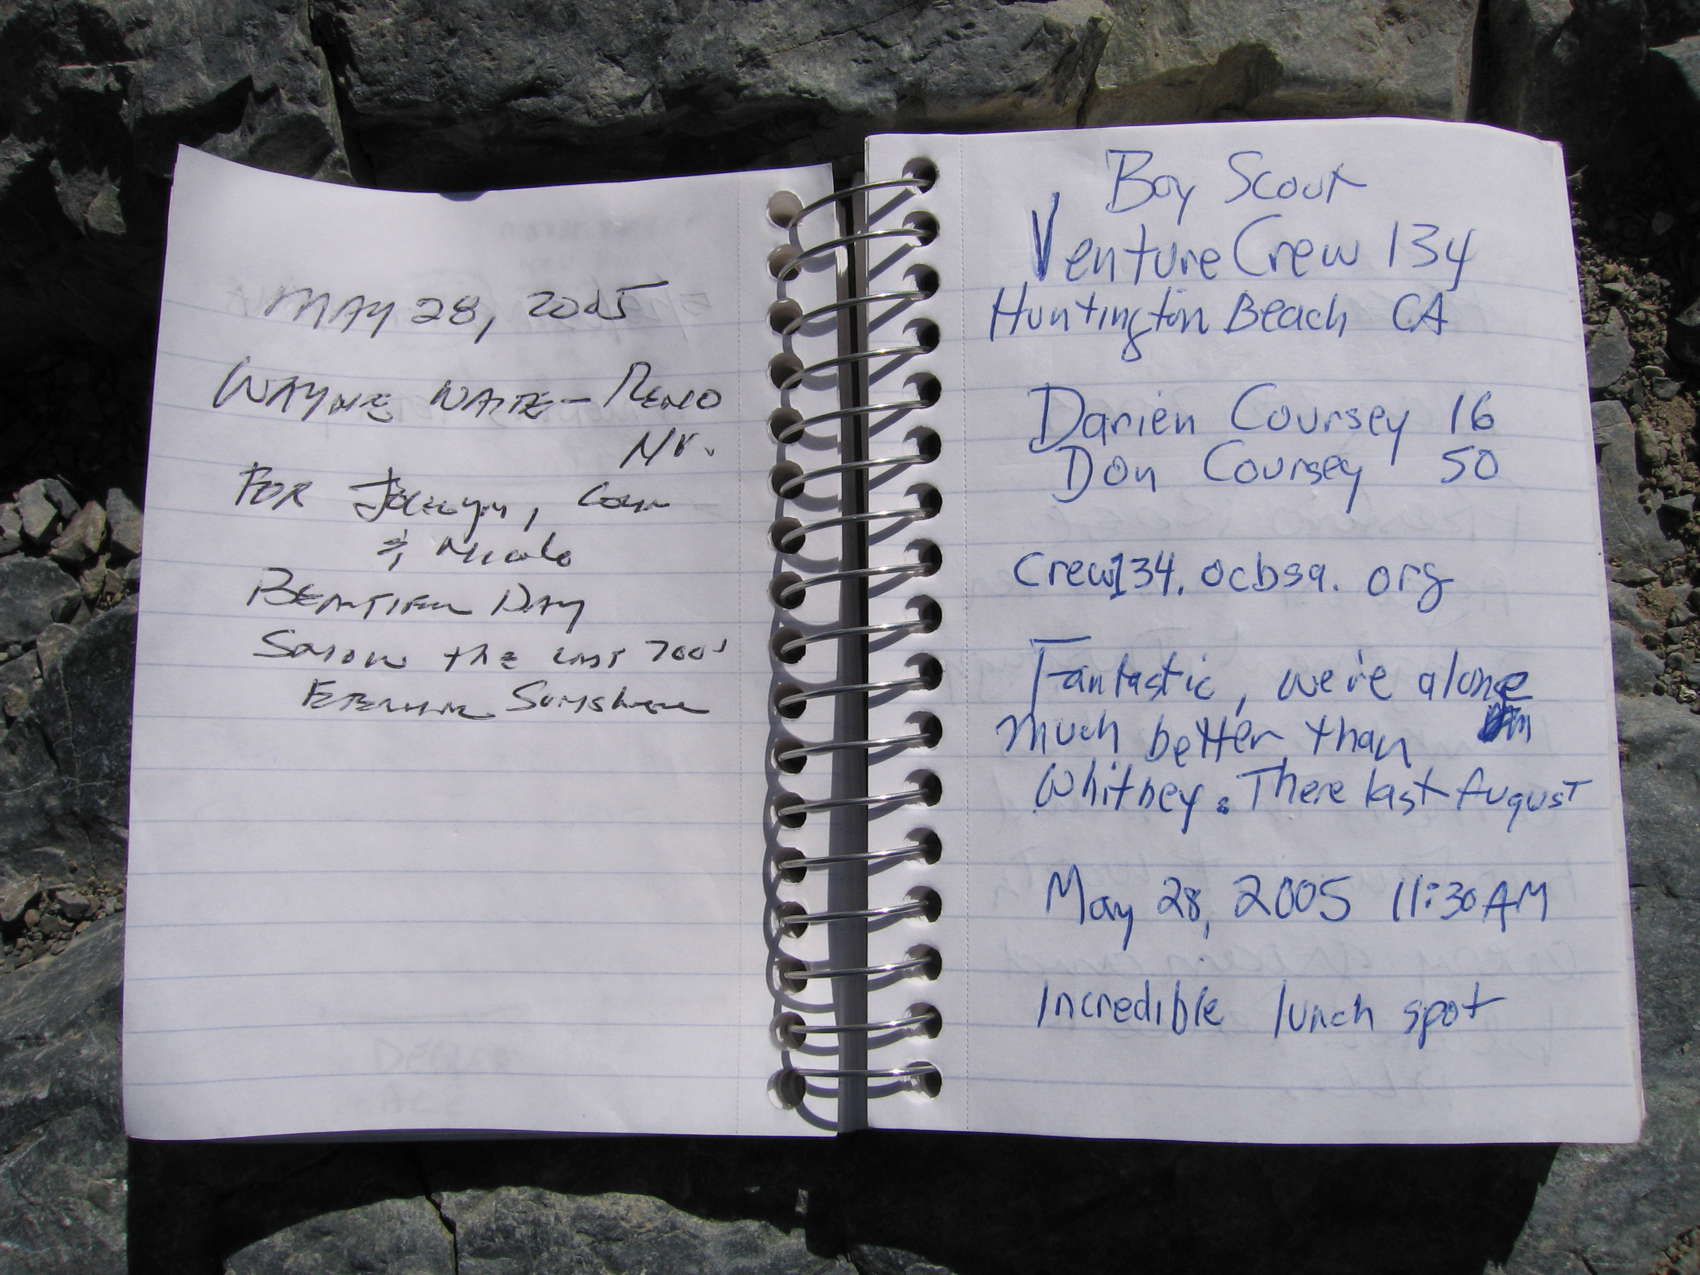 MAY 28, 2005
WAYNE WAITE - RENO
NV.
FOR Jocelyn,
&
BEAUTIFUL DAY
the LAST 700'
Boy Scout
Venture Crew 134
Huntington Beach CA
Darien Coursey 16
Don Coursey 50
crew134.ocbsa.org
Fantastic, we're alone
much better than
Whitney. There last August
May 28, 2005 11:30 AM
Incredible lunch spot